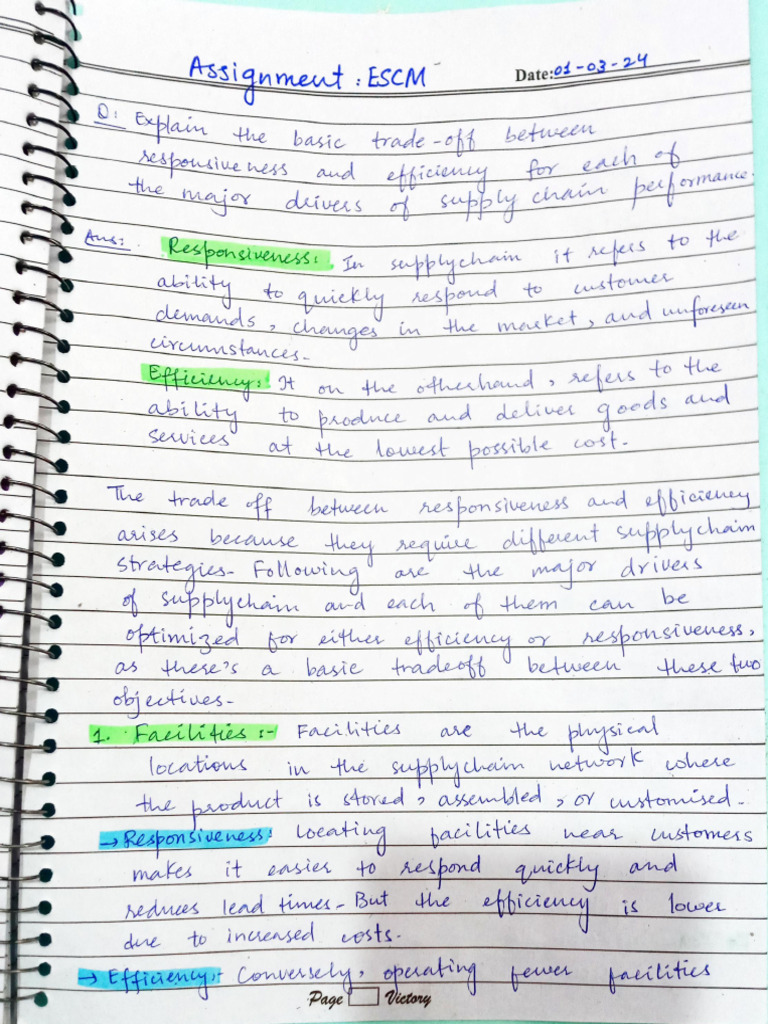 Assignment : ESCM
Date: 01-03-24
Q: Explain the basic trade-off between
responsiveness and efficiency for each of
the major drivers of supply chain performance.
Ans: Responsiveness: In supplychain it refers to the
ability to quickly respond to customer
demands, changes in the market, and unforeseen
circumstances.
Efficiency: It on the otherhand, refers to the
ability to produce and deliver goods and
services at the lowest possible cost.
The trade off between responsiveness and efficiency
arises because they require different supplychain
strategies. Following are the major drivers
of supplychain and each of them can be
optimized for either efficiency or responsiveness,
as there's a basic tradeoff between these two
objectives.
1. Facilities :- Facilities are the physical
locations in the supplychain network where
the product is stored, assembled, or customised.
→ Responsiveness: Locating facilities near customers
makes it easier to respond quickly and
reduces lead times. But the efficiency is lower
due to increased costs.
→ Efficiency:- Conversely, operating fewer facilities
Page Victory